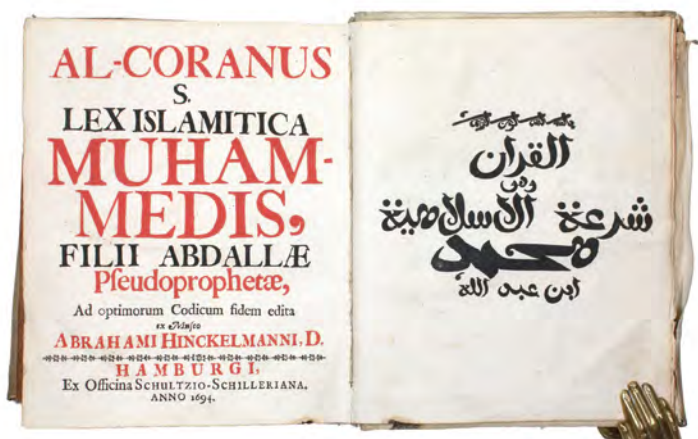 AL-CORANUS
S.
LEX ISLAMITICA
MUHAM-
MEDIS,
FILII ABDALLÆ
Pſeudoprophetæ,
Ad optimorum Codicum fidem edita
ex Muſeo
ABRAHAMI HINCKELMANNI, D.
HAMBURGI,
Ex Officina SCHULTZIO-SCHILLERIANA,
ANNO 1694.
القران
وهى
شرعة الاسلامية
محمد
ابن عبد الله